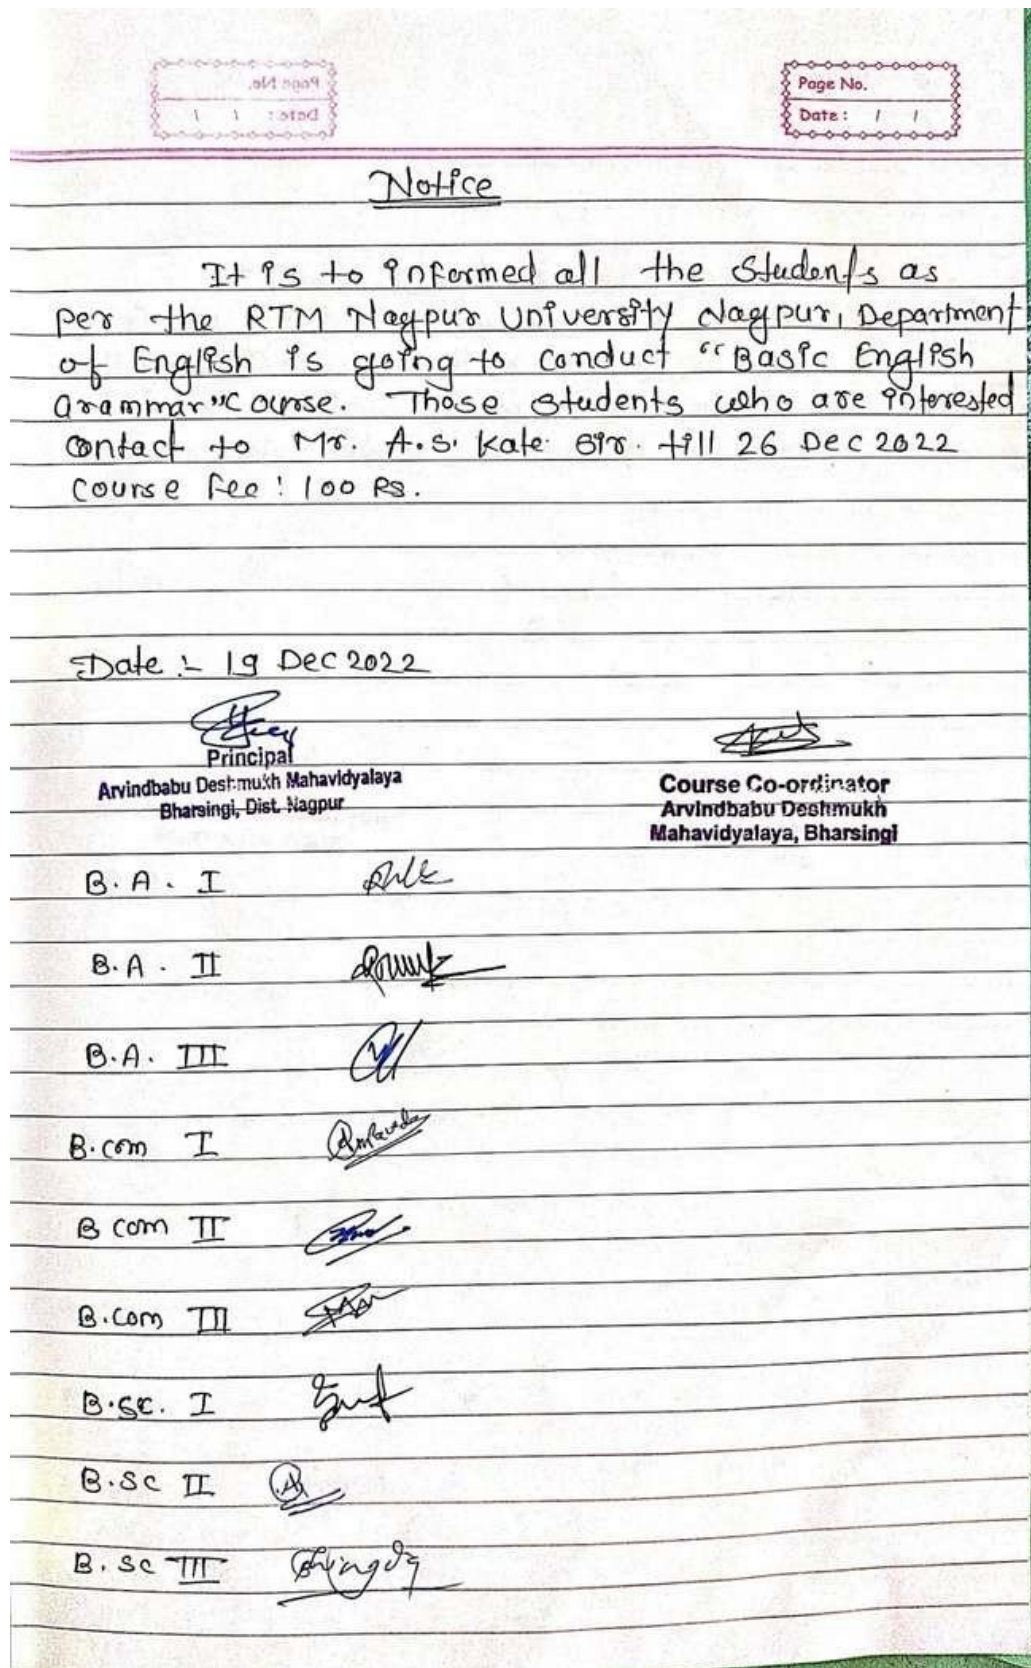 Page No.
Date : / /
Page No.
Date : / /
Notice
It is to informed all the Students as
per the RTM Nagpur University Nagpur, Department
of English is going to conduct "Basic English
Grammar" Course. Those students who are interested
contact to Mr. A.S. Kate sir. till 26 Dec 2022
Course fee : 100 Rs.
Date :- 19 Dec 2022
Principal
Arvindbabu Deshmukh Mahavidyalaya
Bharsingi, Dist. Nagpur
Course Co-ordinator
Arvindbabu Deshmukh
Mahavidyalaya, Bharsingi
B.A. I
B.A. II
B.A. III
B.com I
B com II
B.com III
B.sc. I
B.sc II
B.sc III